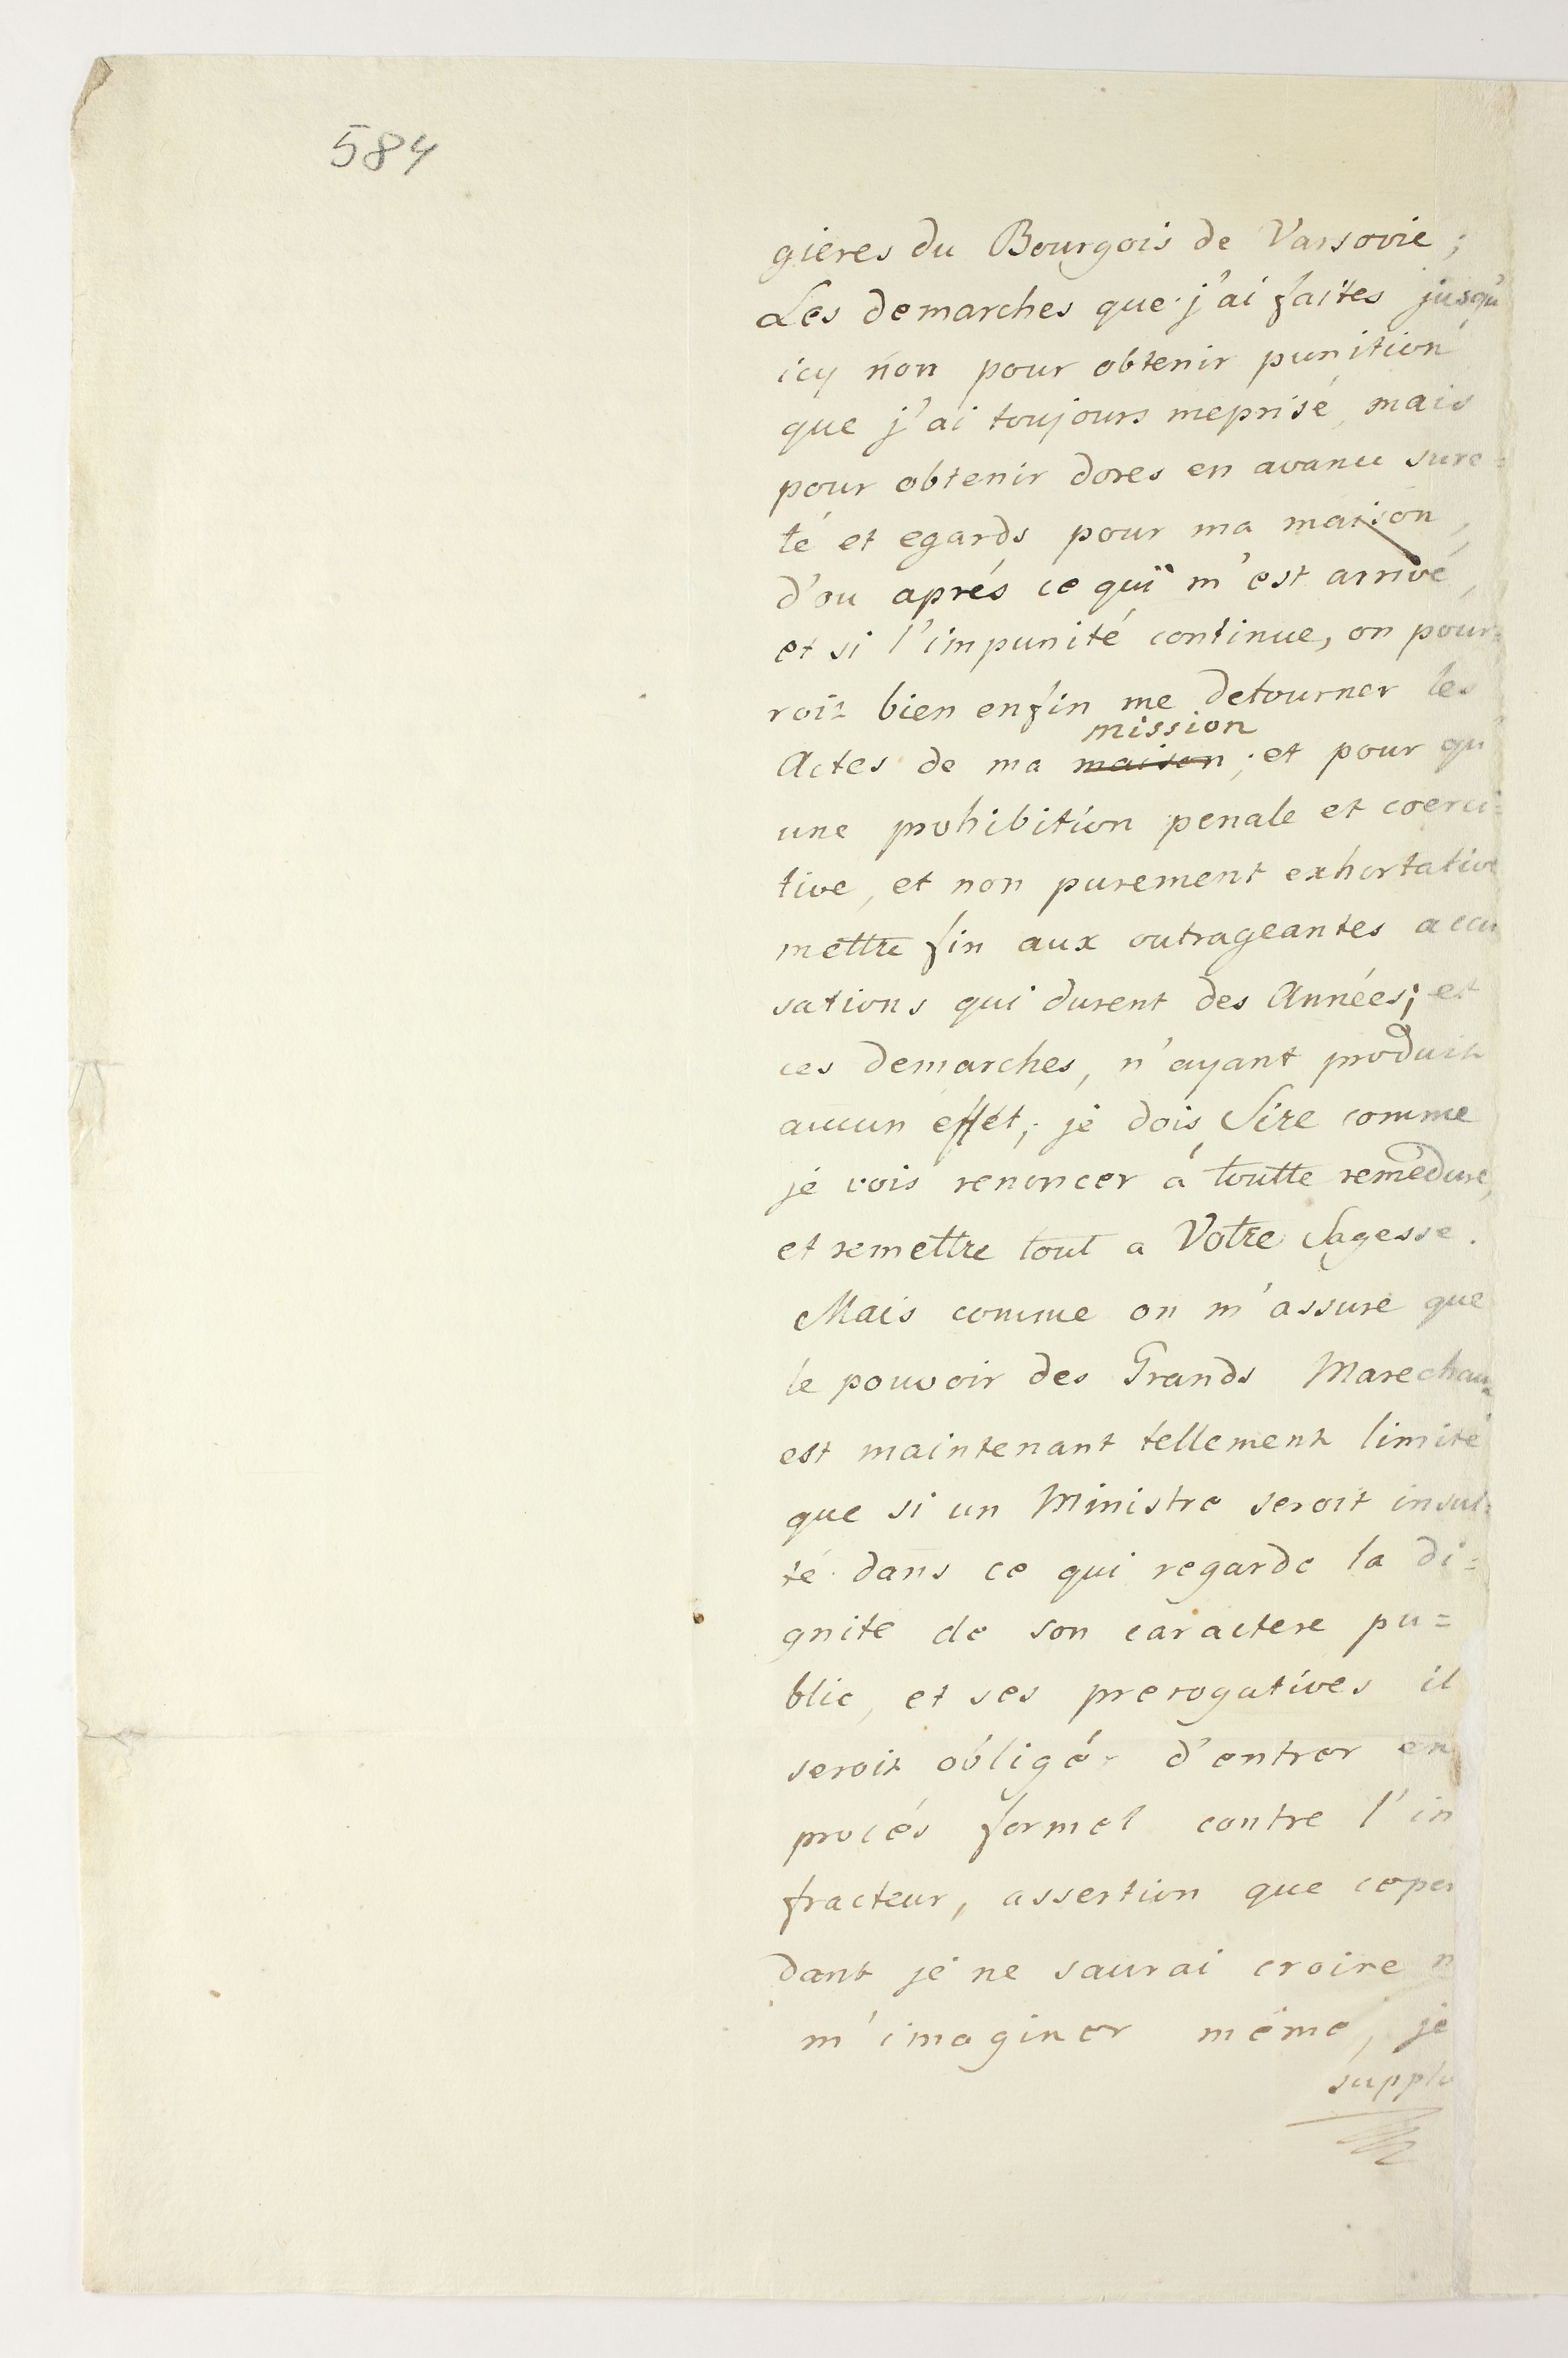 584
gieres du Bourgois de Varsovie ;
Les demarches que j'ai faites jusqu'
icy non pour obtenir punition
que j'ai toujours meprisé, mais
pour obtenir dores en avance sure=
té et egards pour ma maison,
d'ou aprés ce qui m'est arrivé,
et si l'impunité continue, on pour=
roit bien enfin me detourner les
mission
Actes de ma maison ; et pour qu'
une prohibition penale et coerci=
tive, et non purement exhortative
mettre fin aux outrageantes accu
sations qui durent des Années; et
ces demarches, n'ayant produit
aucun effét; je dois Sire comme
je vois renoncer á toutte remedure,
et remettre tout a Votre Sagesse.
Mais comme on m'assure que
le pouvoir des Grands Marechaux
est maintenant tellement limité
que si un Ministre seroit insul=
té dans ce qui regarde la di=
gnité de son caractere pu=
blic, et ses prerogatives il
seroit obligé d'entrer en
procés formel contre l'in
fracteur, assertion que cepen
dant je ne saurai croire n
m'imaginer même, je
supplie